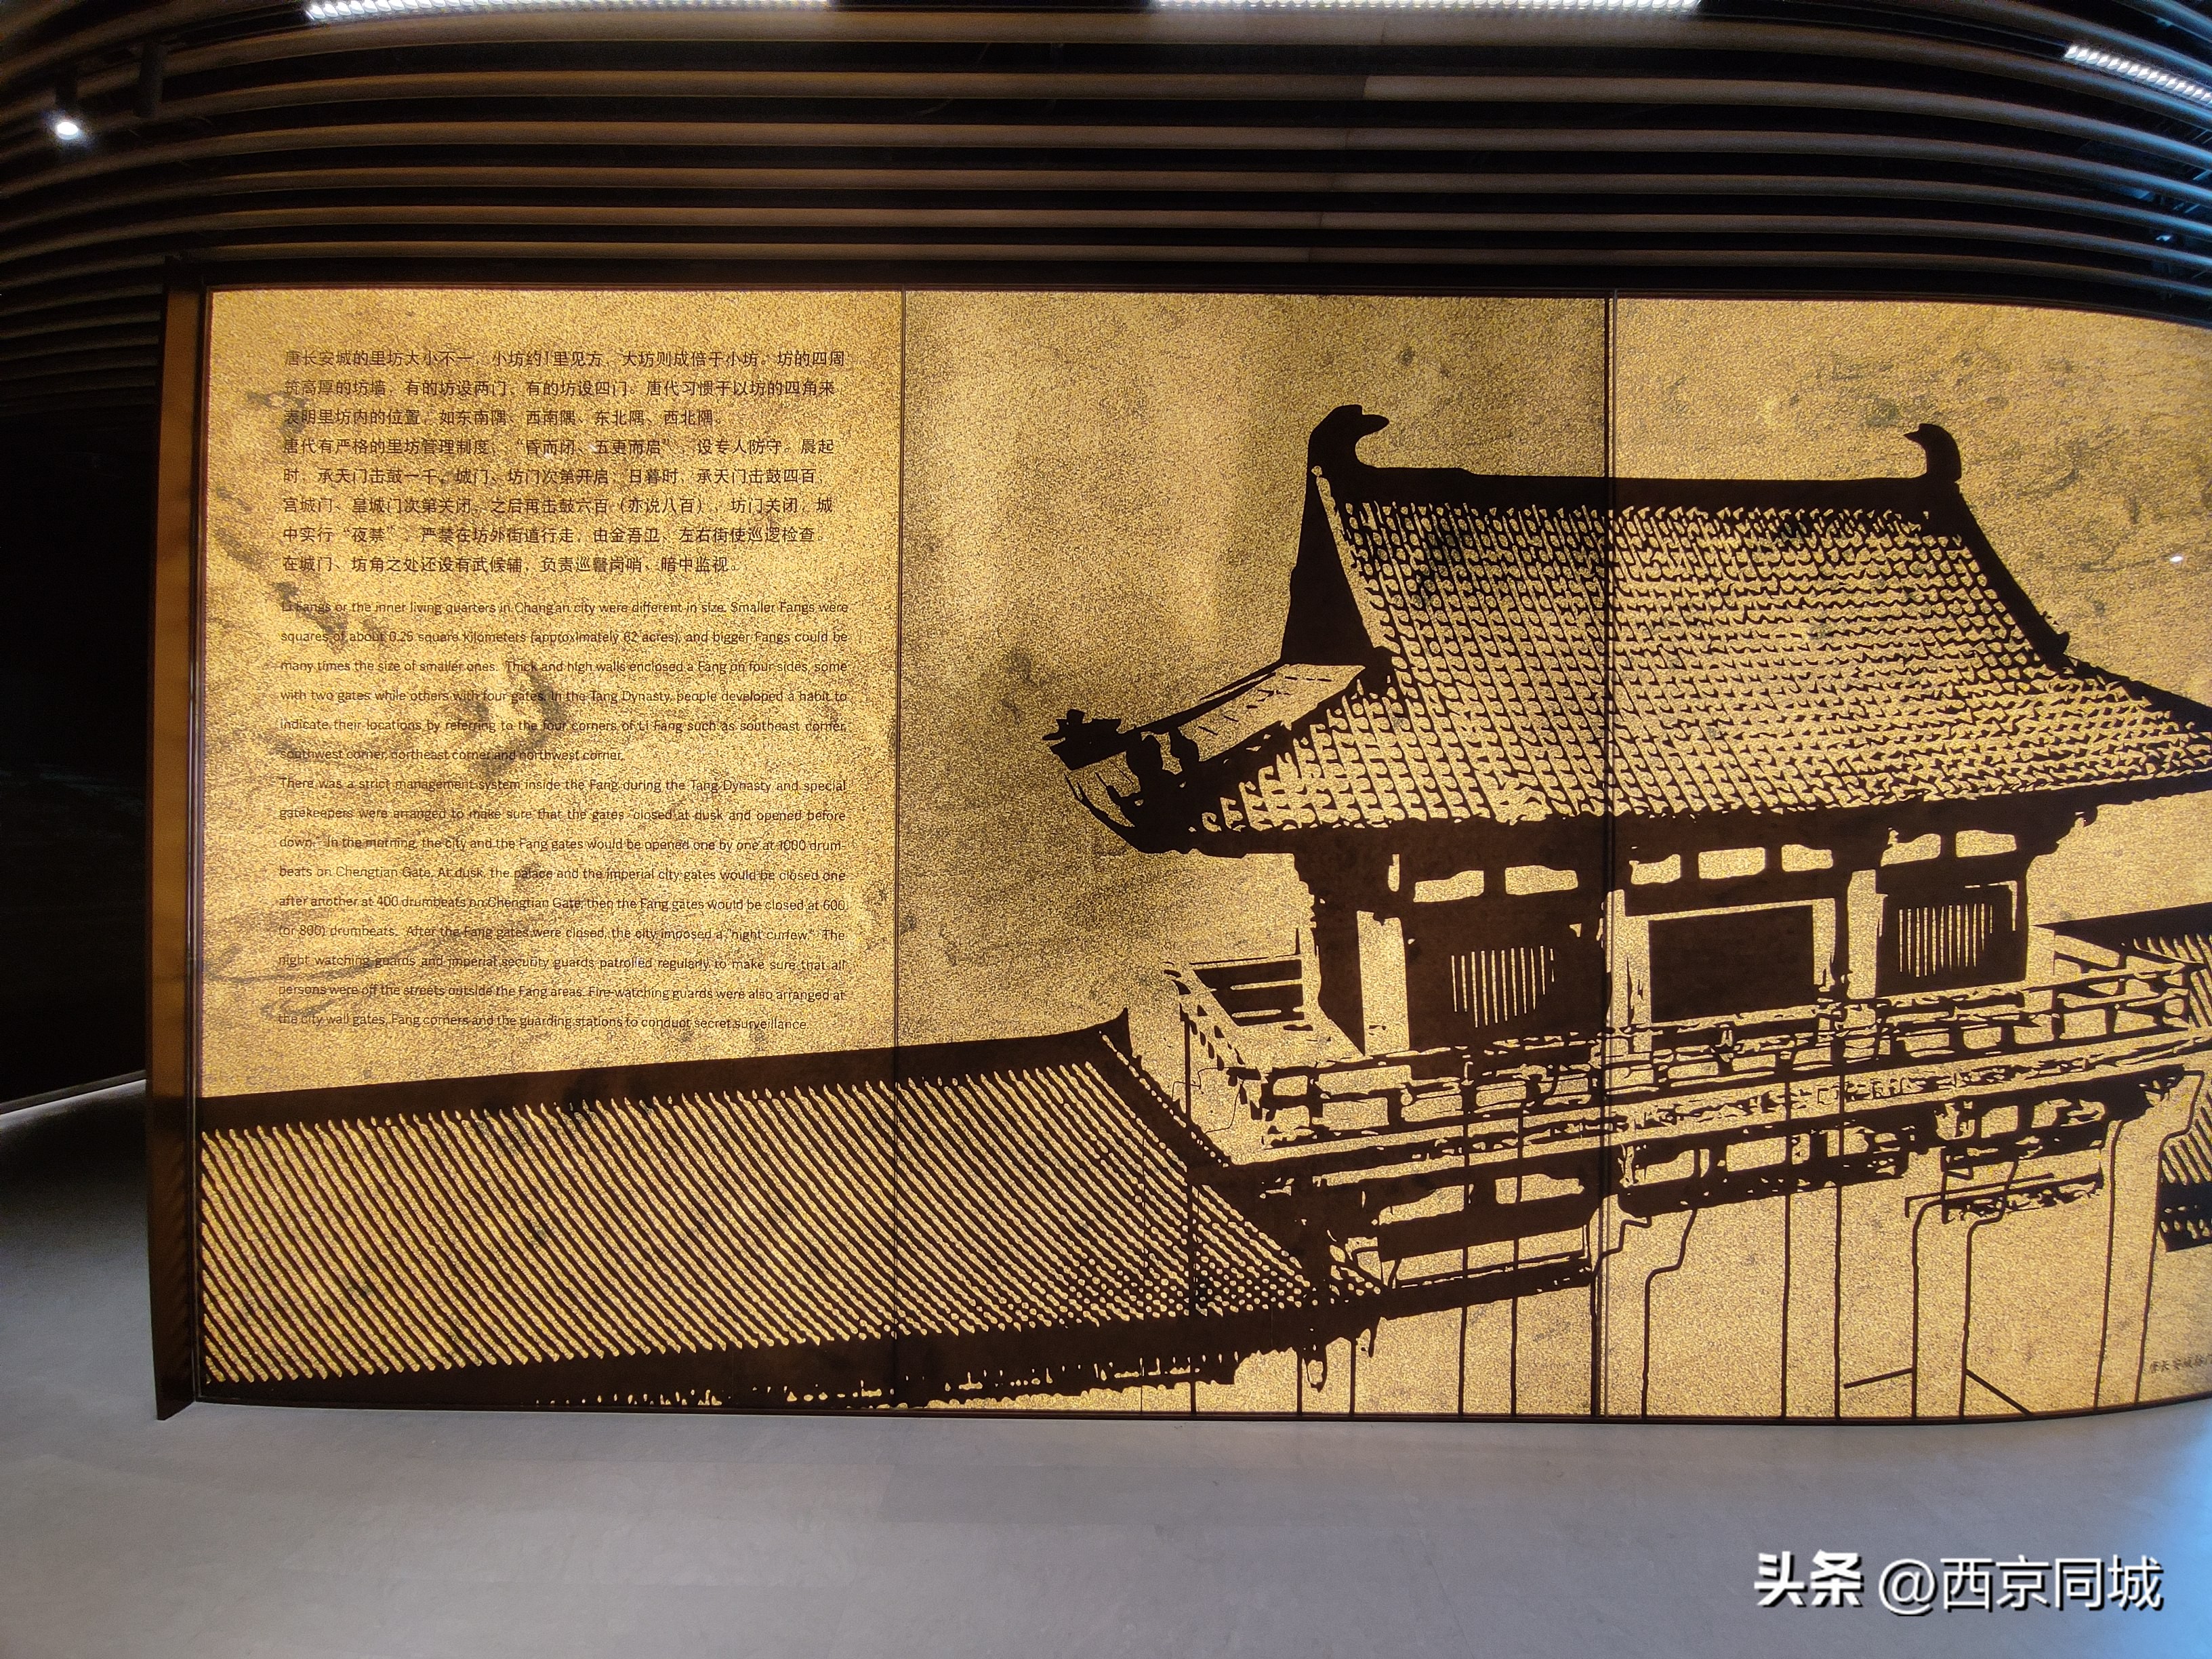 唐长安城的里坊大小不一，小坊约1里见方，大坊则成倍于小坊。坊的四周
筑高厚的坊墙，有的坊设两门，有的坊设四门。唐代习惯于以坊的四角来
表明里坊内的位置，如东南隅、西南隅、东北隅、西北隅。
唐代有严格的里坊管理制度，“昏而闭、五更而启”，设专人防守。晨起
时，承天门击鼓一千，城门、坊门次第开启；日暮时，承天门击鼓四百，
宫城门、皇城门次第关闭，之后再击鼓六百（亦说八百），坊门关闭，城
中实行“夜禁”。严禁在坊外街道行走，由金吾卫、左右街使巡逻检查。
在城门、坊角之处还设有武候铺，负责巡警岗哨、暗中监视。
Li Fangs or the inner living quarters in Chang'an city were different in size. Smaller Fangs were
squares of about 0.25 square kilometers (approximately 62 acres), and bigger Fangs could be
many times the size of smaller ones. Thick and high walls enclosed a Fang on four sides, some
with two gates while others with four gates. In the Tang Dynasty, people developed a habit to
indicate their locations by referring to the four corners of Li Fang such as southeast corner,
southwest corner, northeast corner and northwest corner.
There was a strict management system inside the Fang during the Tang Dynasty and special
gatekeepers were arranged to make sure that the gates "closed at dusk and opened before
down." In the morning, the city and the Fang gates would be opened one by one at 1000 drum-
beats on Chengtian Gate. At dusk, the palace and the imperial city gates would be closed one
after another at 400 drumbeats on Chengtian Gate; then the Fang gates would be closed at 600
(or 800) drumbeats. After the Fang gates were closed, the city imposed a "night curfew." The
night watching guards and imperial security guards patrolled regularly to make sure that all
persons were off the streets outside the Fang areas. Fire-watching guards were also arranged at
the city wall gates, Fang corners and the guarding stations to conduct secret surveillance.
唐长安城
头条 @西京同城